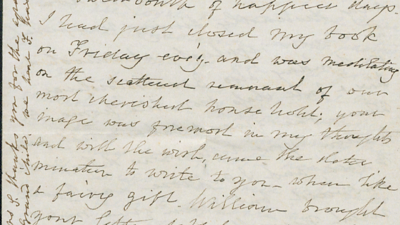 of happier days.
I had just closed my book
on Friday eve'g. and was meditating
on the scattered remnant of our
most cherished household; your
image was foremost in my thoughts
and with the wish, came the deter
mination to write to you - when like
a fairy gift William brought
your
thanks you for the